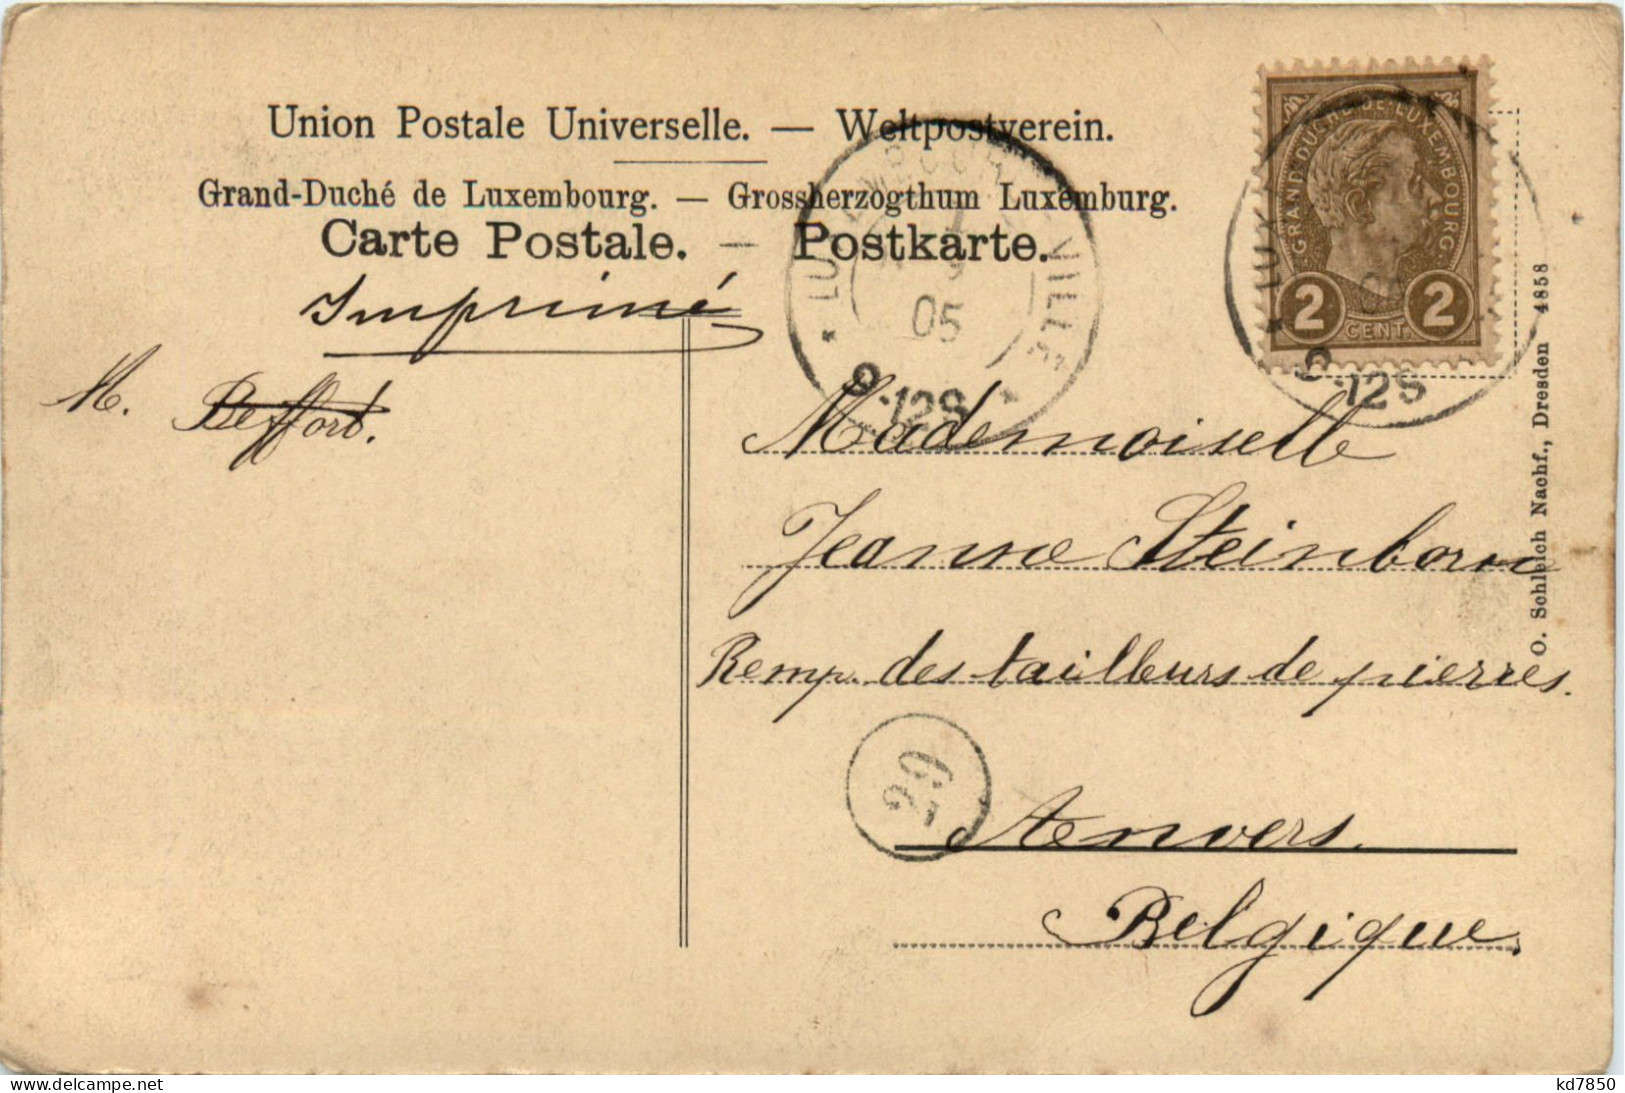 Union Postale Universelle. — Weltpostverein.
Grand-Duché de Luxembourg. — Grossherzogthum Luxemburg.
Carte Postale. — Postkarte.
Imprimé
M. Beffort.
GRAND-DUCHÉ-DE-LUXEMBOURG
2 CENT. 2
VILLE
05
9-12S
9-12S
Mademoiselle
Jeanne Steinborn
Remp. des tailleurs de pierres.
29
Anvers.
Belgique.
O. Schleich Nachf., Dresden 4858
delcampe.net
kd7850